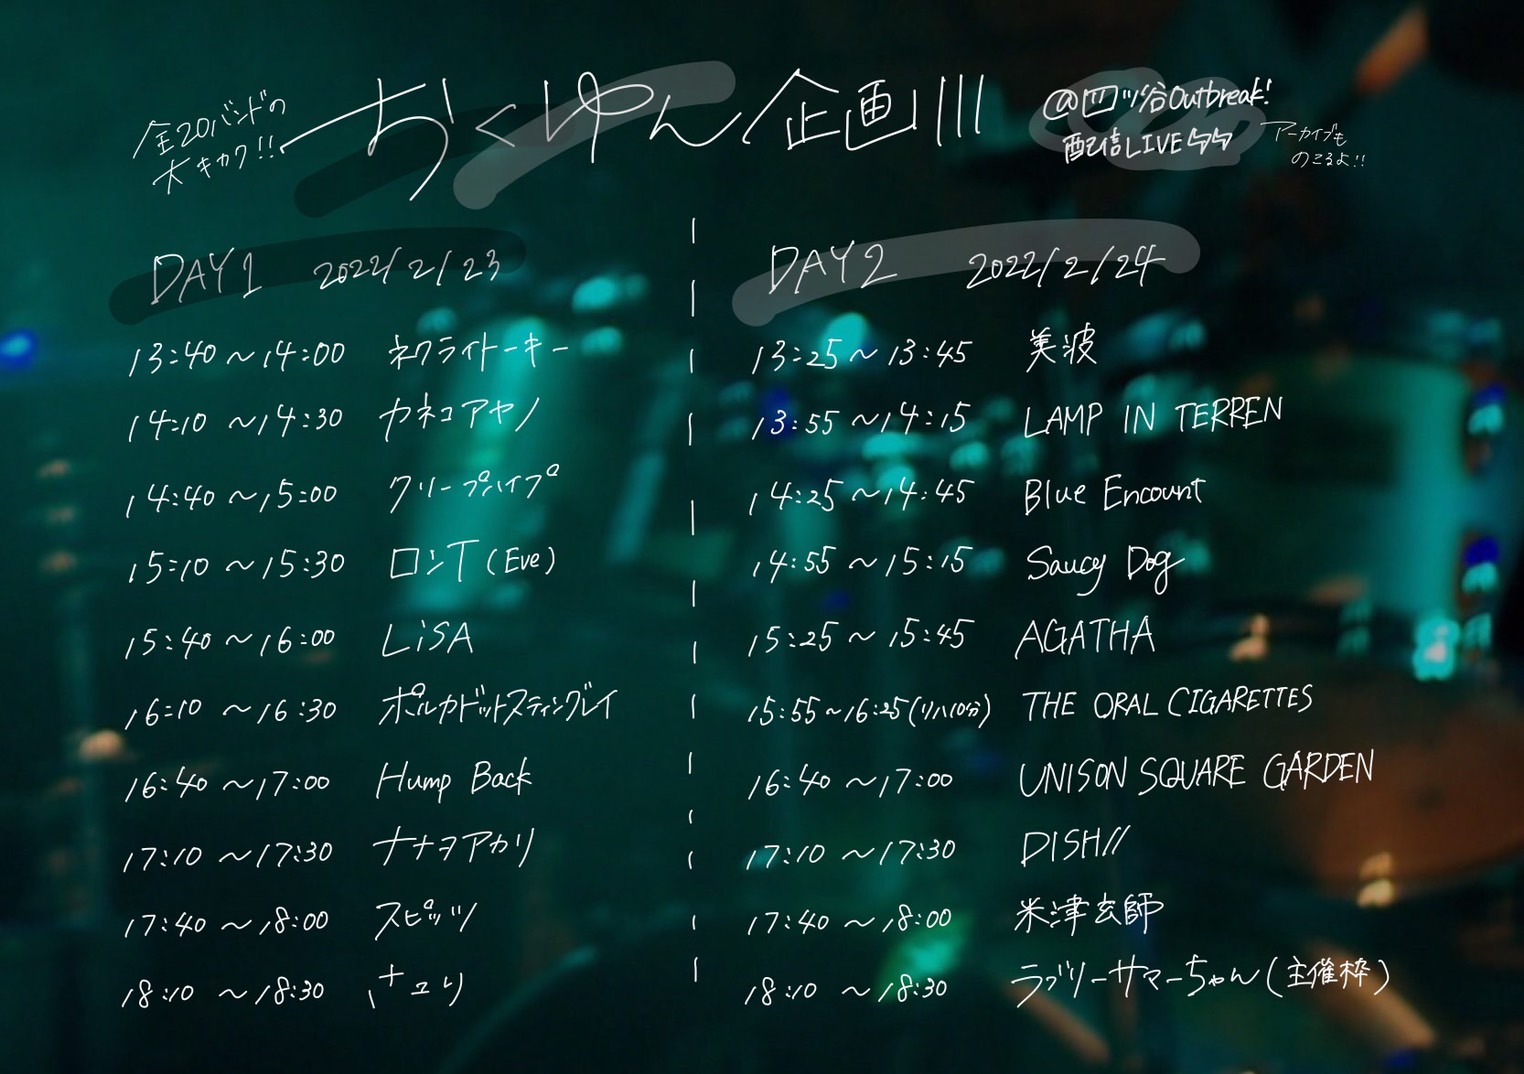 全20バンドの
大キカク!!
おくゆん企画!!!
@四ツ谷Outbreak!
配信LIVE
アーカイブも
のこるよ!!
DAY1 2022/2/23
13:40 ~ 14:00 ネクライトーキー
14:10 ~ 14:30 カネコアヤノ
14:40 ~ 15:00 クリープハイプ
15:10 ~ 15:30 ロンT (Eve)
15:40 ~ 16:00 LiSA
16:10 ~ 16:30 ポルカドットスティングレイ
16:40 ~ 17:00 Hump Back
17:10 ~ 17:30 ナナヲアカリ
17:40 ~ 18:00 スピッツ
18:10 ~ 18:30
DAY2 2022/2/24
13:25 ~ 13:45 美波
13:55 ~ 14:15 LAMP IN TERREN
14:25 ~ 14:45 Blue Encount
14:55 ~ 15:15 Saucy Dog
15:25 ~ 15:45 AGATHA
15:55 ~ 16:25 (リハ10分) THE ORAL CIGARETTES
16:40 ~ 17:00 UNISON SQUARE GARDEN
17:10 ~ 17:30 DISH//
17:40 ~ 18:00 米津玄師
18:10 ~ 18:30 ラブリーサマーちゃん (主催枠)